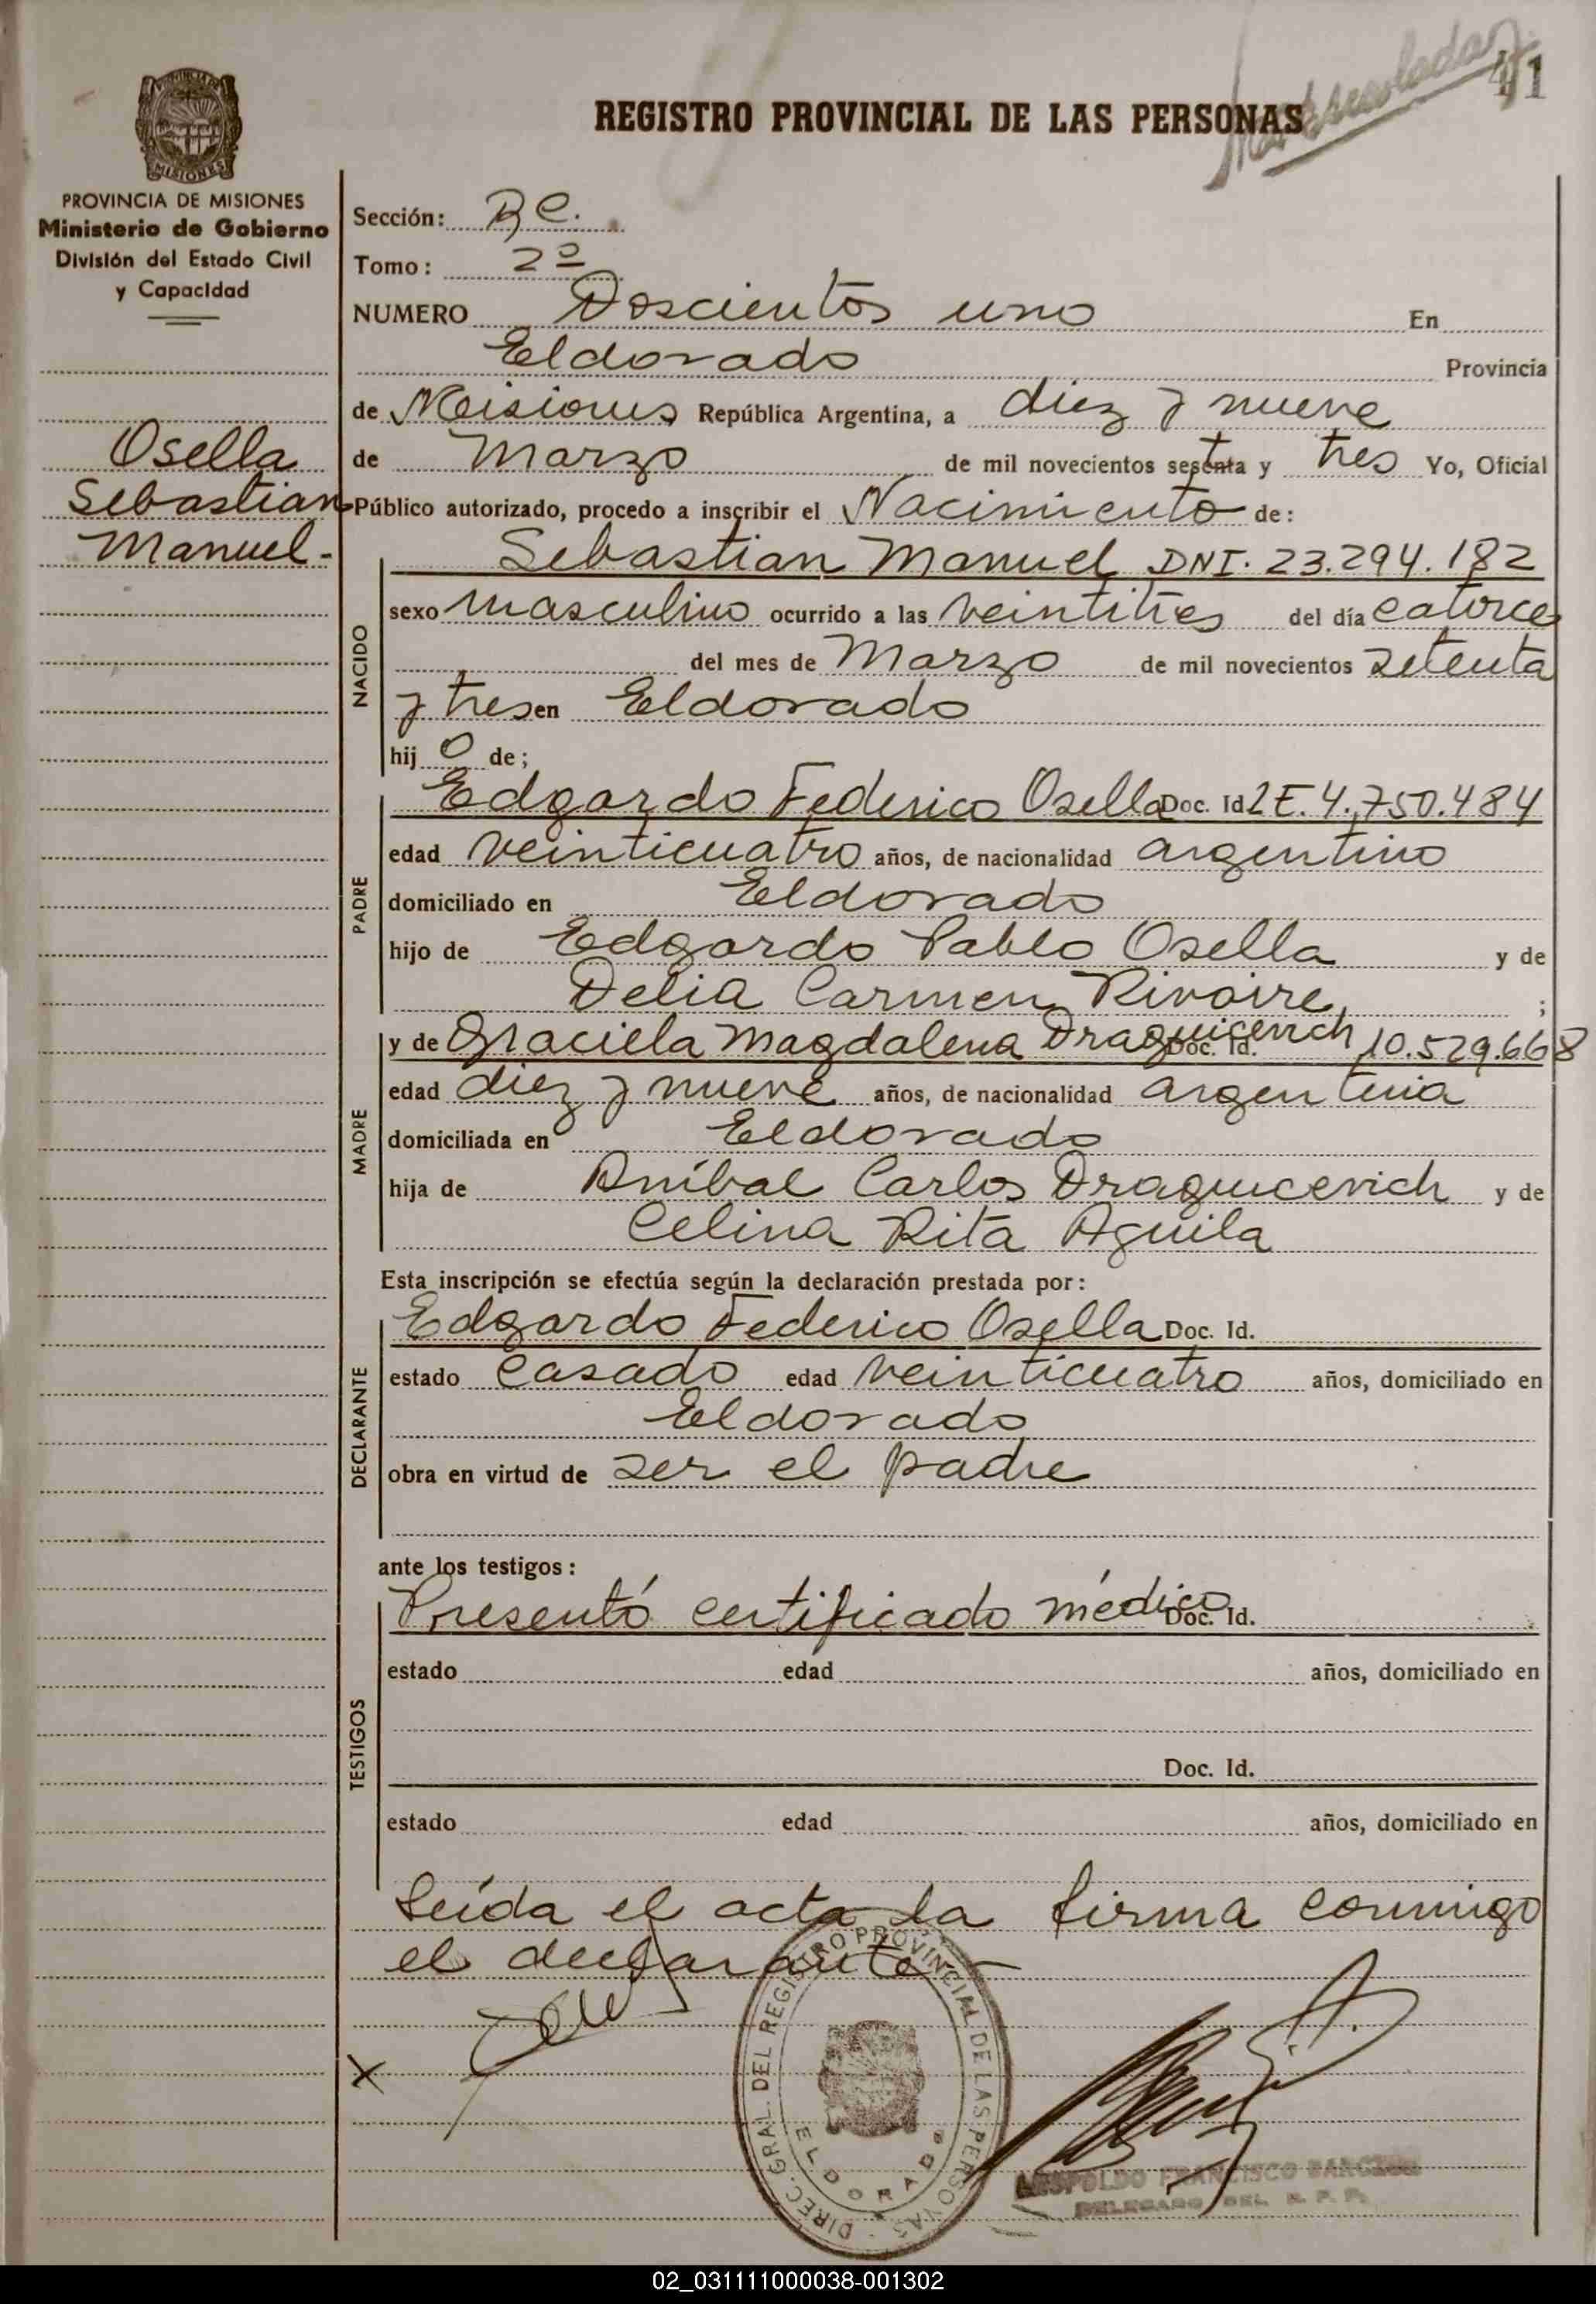 41
Matriculado
REGISTRO PROVINCIAL DE LAS PERSONAS
PROVINCIA DE MISIONES
MISIONES
PROVINCIA DE MISIONES
Ministerio de Gobierno
División del Estado Civil
y Capacidad
Osella
Sebastian
Manuel -
Sección: B C.
Tomo: 2º
NUMERO Doscientos uno En
Eldorado Provincia
de Misiones República Argentina, a diez y nueve
de Marzo de mil novecientos sesenta y tres Yo, Oficial
Público autorizado, procedo a inscribir el Nacimiento de:
NACIDO
Sebastian Manuel DNI. 23.294.182
sexo masculino ocurrido a las veintitres del día catorce
del mes de Marzo de mil novecientos setenta
y tres en Eldorado
hij o de;
PADRE
Edgardo Federico Osella Doc. Id LE. 4.750.484
edad veinticuatro años, de nacionalidad argentino
domiciliado en Eldorado
hijo de Edgardo Pablo Osella y de
Delia Carmen Rivoire ;
MADRE
y de Graciela Magdalena Draguicevich Doc. Id. 10.529.668
edad diez y nueve años, de nacionalidad argentina
domiciliada en Eldorado
hija de Aníbal Carlos Draguicevich y de
Celina Rita Aguila
Esta inscripción se efectúa según la declaración prestada por:
DECLARANTE
Edgardo Federico Osella Doc. Id.
estado casado edad veinticuatro años, domiciliado en
Eldorado
obra en virtud de ser el padre
ante los testigos:
TESTIGOS
Presentó certificado médico Doc. Id.
estado edad años, domiciliado en
Doc. Id.
estado edad años, domiciliado en
Leída el acta la firma conmigo
el declarante -
X
DIREC. GRAL. DEL REGISTRO PROVINCIAL DE LAS PERSONAS
ELDORADO
LEOPOLDO FRANCISCO
DELEGADO DEL R. P. P.
02_031111000038-001302